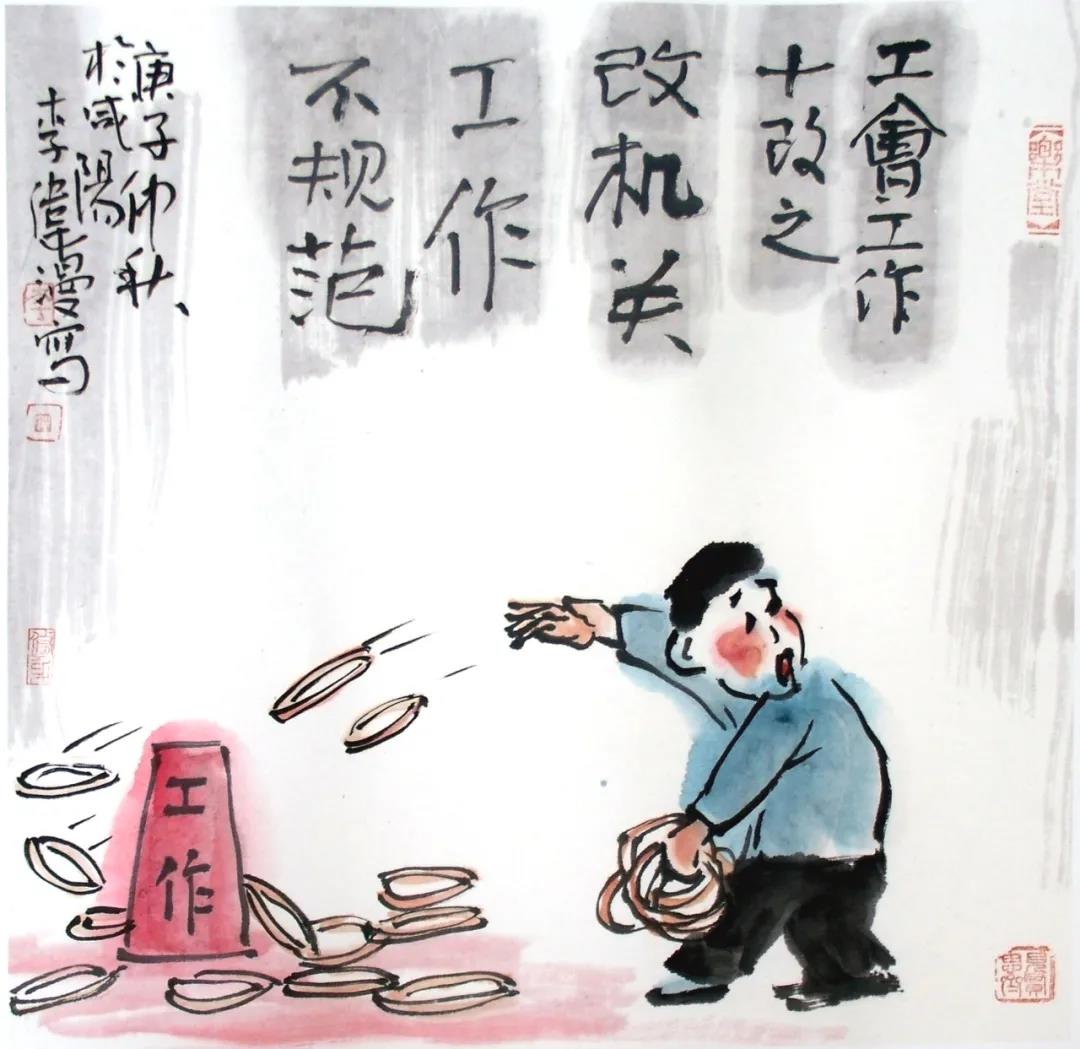 工會工作
十改之
改机关
工作
不规范
庚子仲秋、
於咸陽
李偉漫寫
工作